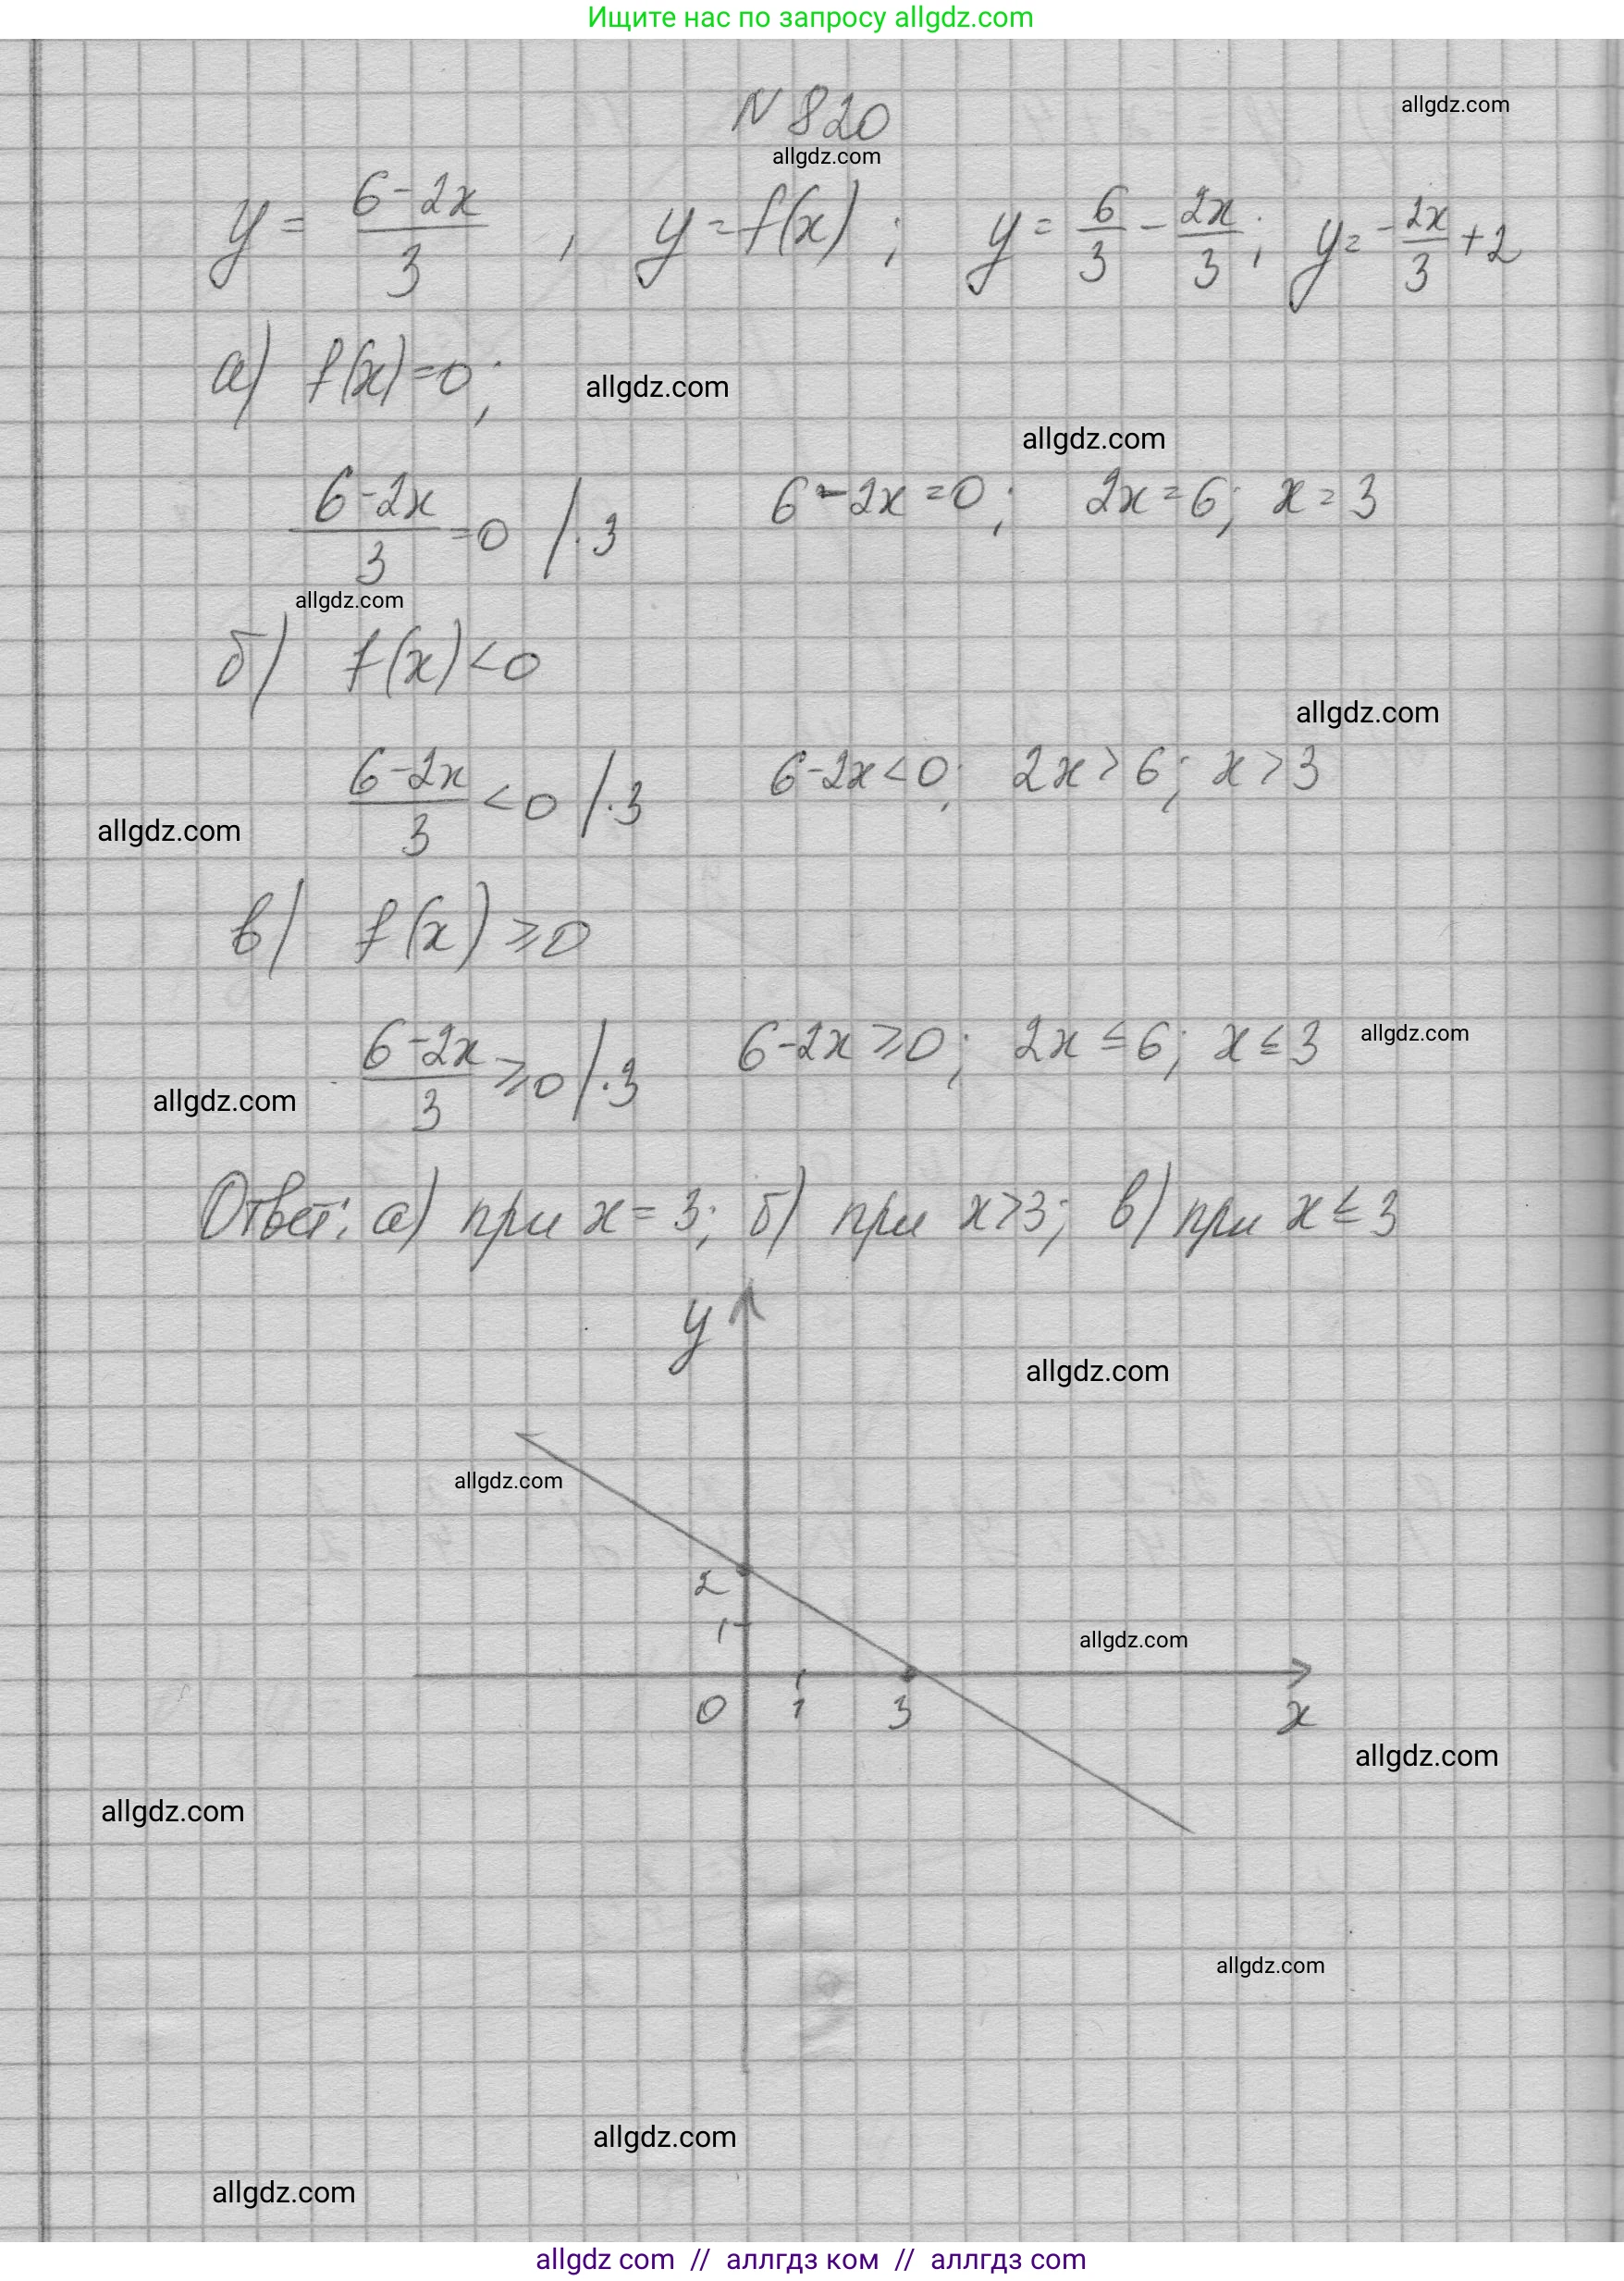 Ищите нас по запросу allgdz.com
allgdz.com
N 820
allgdz.com
y = (6-2x)/3 , y = f(x) ; y = 6/3 - 2x/3 ; y = -2x/3 + 2
а) f(x)=0;
allgdz.com
allgdz.com
(6-2x)/3 = 0 / ·3 6-2x=0; 2x=6; x=3
allgdz.com
б) f(x)<0
allgdz.com
(6-2x)/3 < 0 / ·3 6-2x<0; 2x>6; x>3
allgdz.com
в) f(x) ⩾ 0
(6-2x)/3 ⩾ 0 / ·3 6-2x⩾0; 2x≤6; x≤3 allgdz.com
allgdz.com
Ответ: а) при x=3; б) при x>3; в) при x≤3
y
allgdz.com
allgdz.com
2
1
allgdz.com
0 1 3 x
allgdz.com
allgdz.com
allgdz.com
allgdz.com
allgdz.com
allgdz com // аллгдз ком // аллгдз com